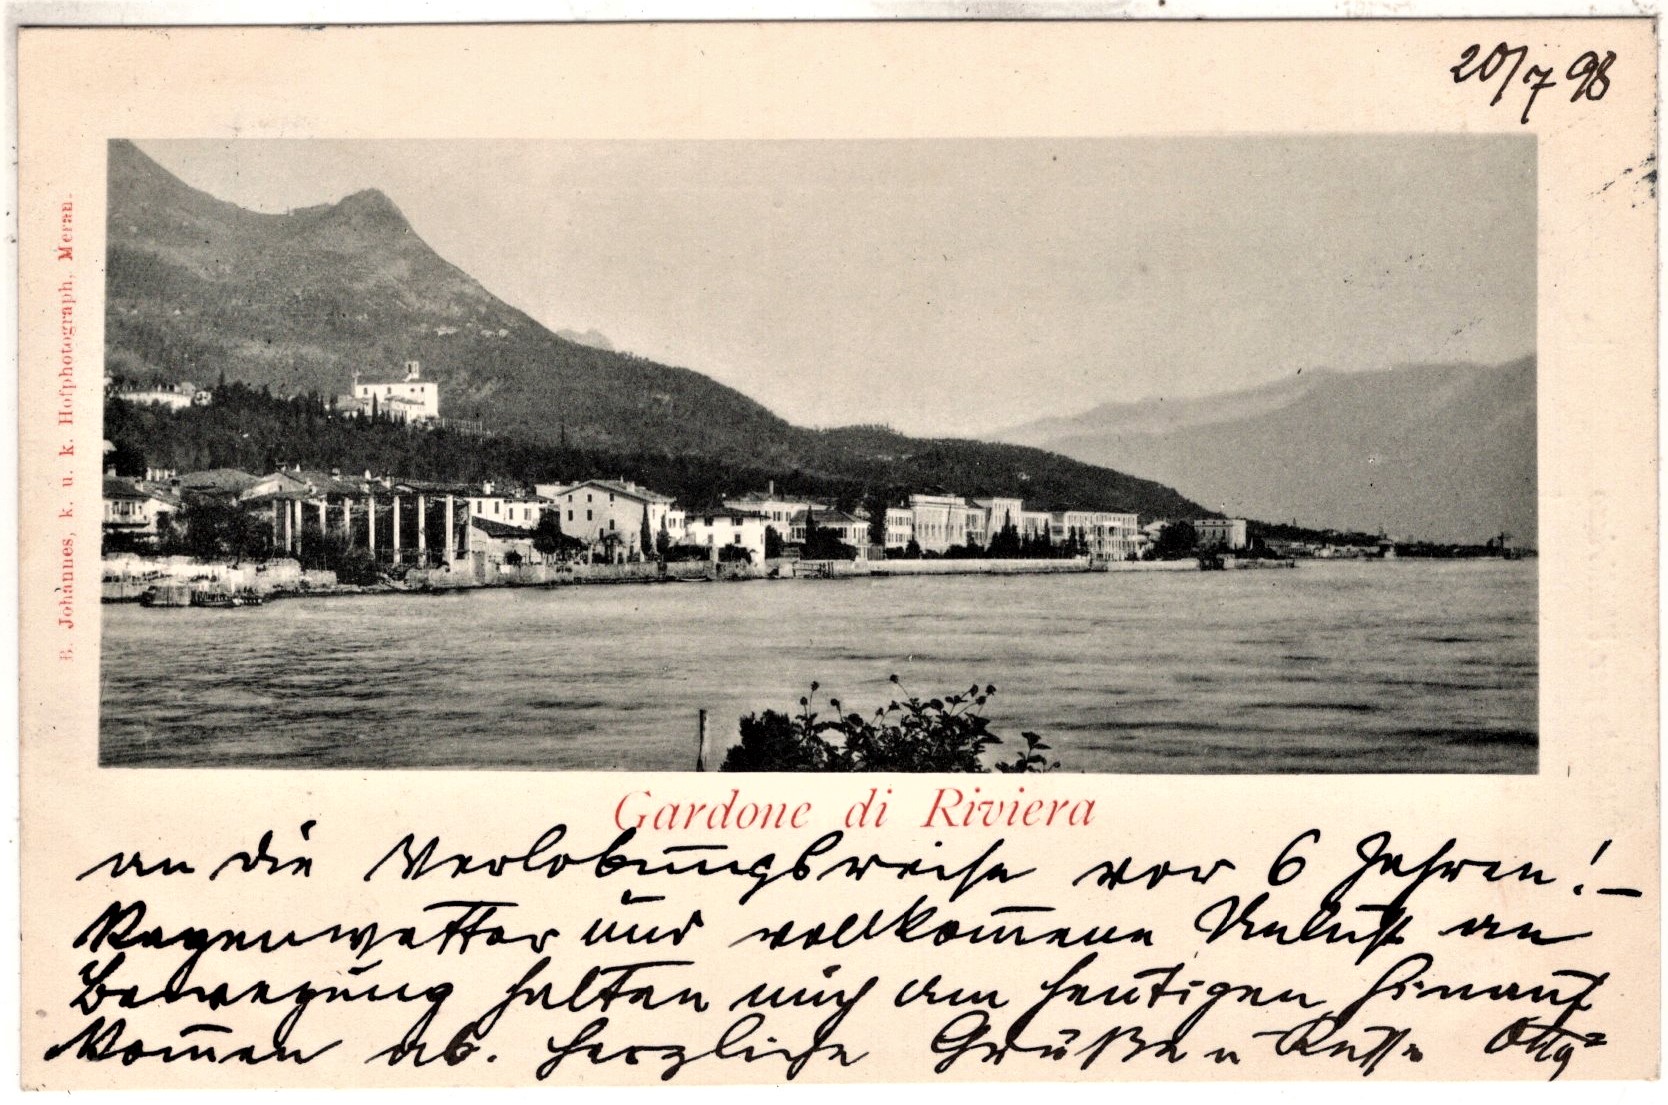 20/7 98
B. Johannes, k. u. k. Hofphotograph, Meran.
Gardone di Riviera
an die Verlobungsreise vor 6 Jahren! –
Regenwetter und vollkommene Unlust an
Bewegung halten mich am heutigen Hinauf
kommen ab. Herzliche Grüße u Küsse